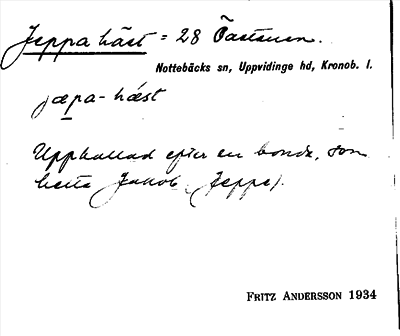 Jeppa häst = 28 Tastsinn.
Nottebäcks sn, Uppvidinge hd, Kronob. l.
jæpa-hæst
Uppkallad efter en bonde, som
hette Jakob (Jeppe).
FRITZ ANDERSSON 1934